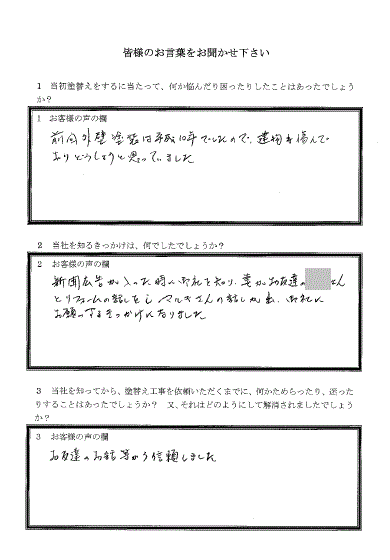 皆様のお言葉をお聞かせ下さい
1 当初塗替えをするに当たって、何か悩んだり困ったりしたことはあったでしょう
か?
1 お客様の声の欄
前回外壁塗装は平成10年でしたので、建物も傷んで
おりどうしようと思っていました
2 当社を知るきっかけは、何でしたでしょうか?
2 お客様の声の欄
新聞広告が入った時に御社を知り、妻がお友達の さん
とリフォームの話しをし マルキさんの話しが出、御社に
お願いするきっかけになりました
3 当社を知ってから、塗替え工事を依頼いただくまでに、何かためらったり、迷った
りすることはあったでしょうか? 又、それはどのようにして解消されましたでしょう
か?
3 お客様の声の欄
お友達のお話等から信頼しました